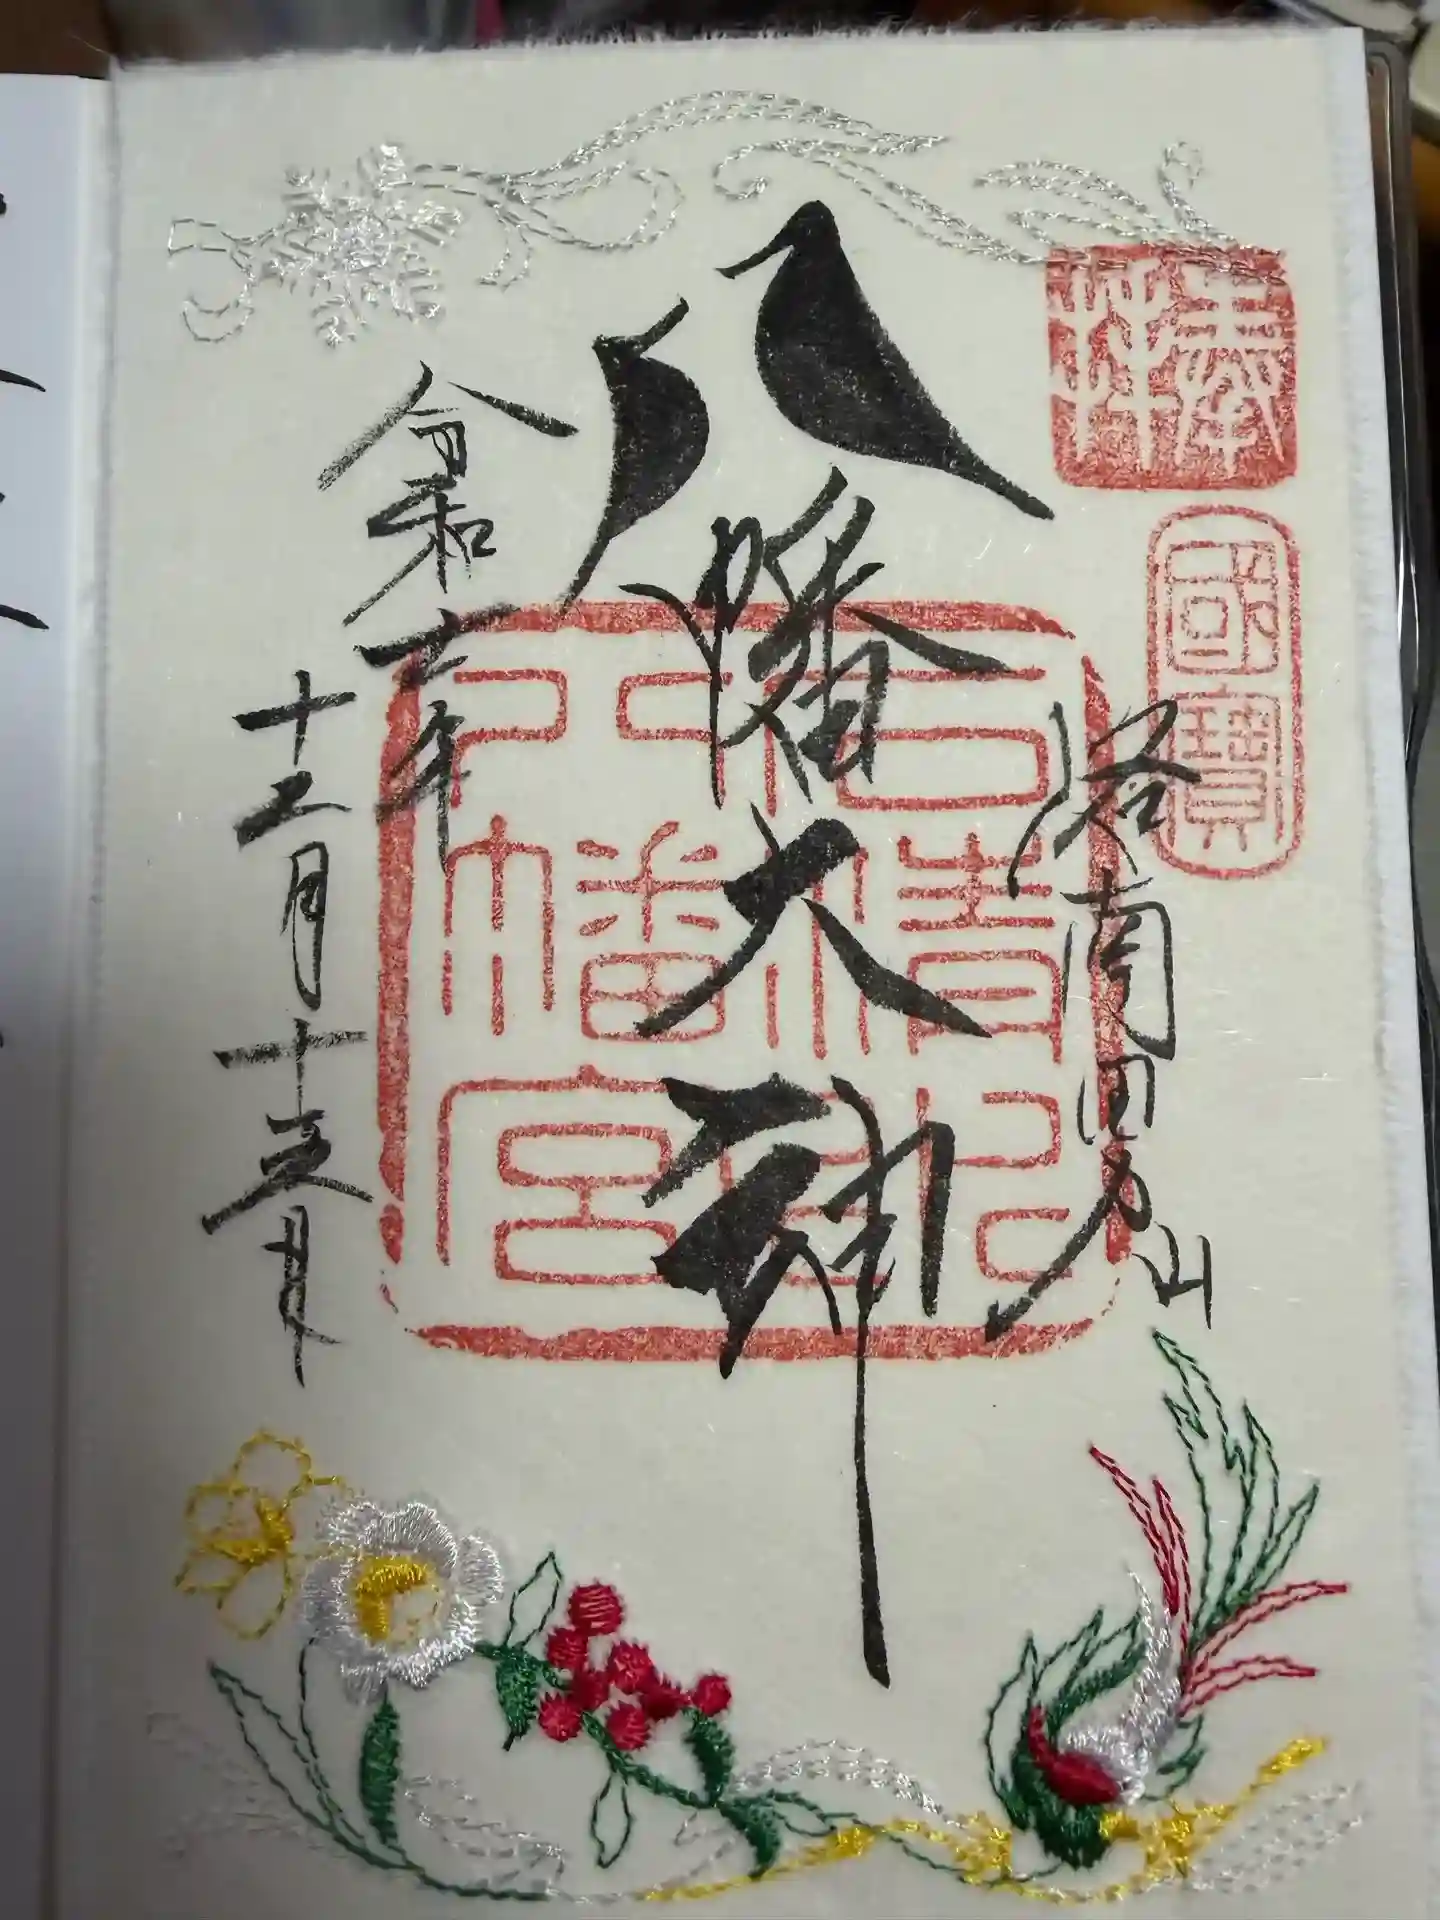 奉拝
國寶
洛南男山
八幡大神
石清水八幡宮
令和七年
十二月十五日